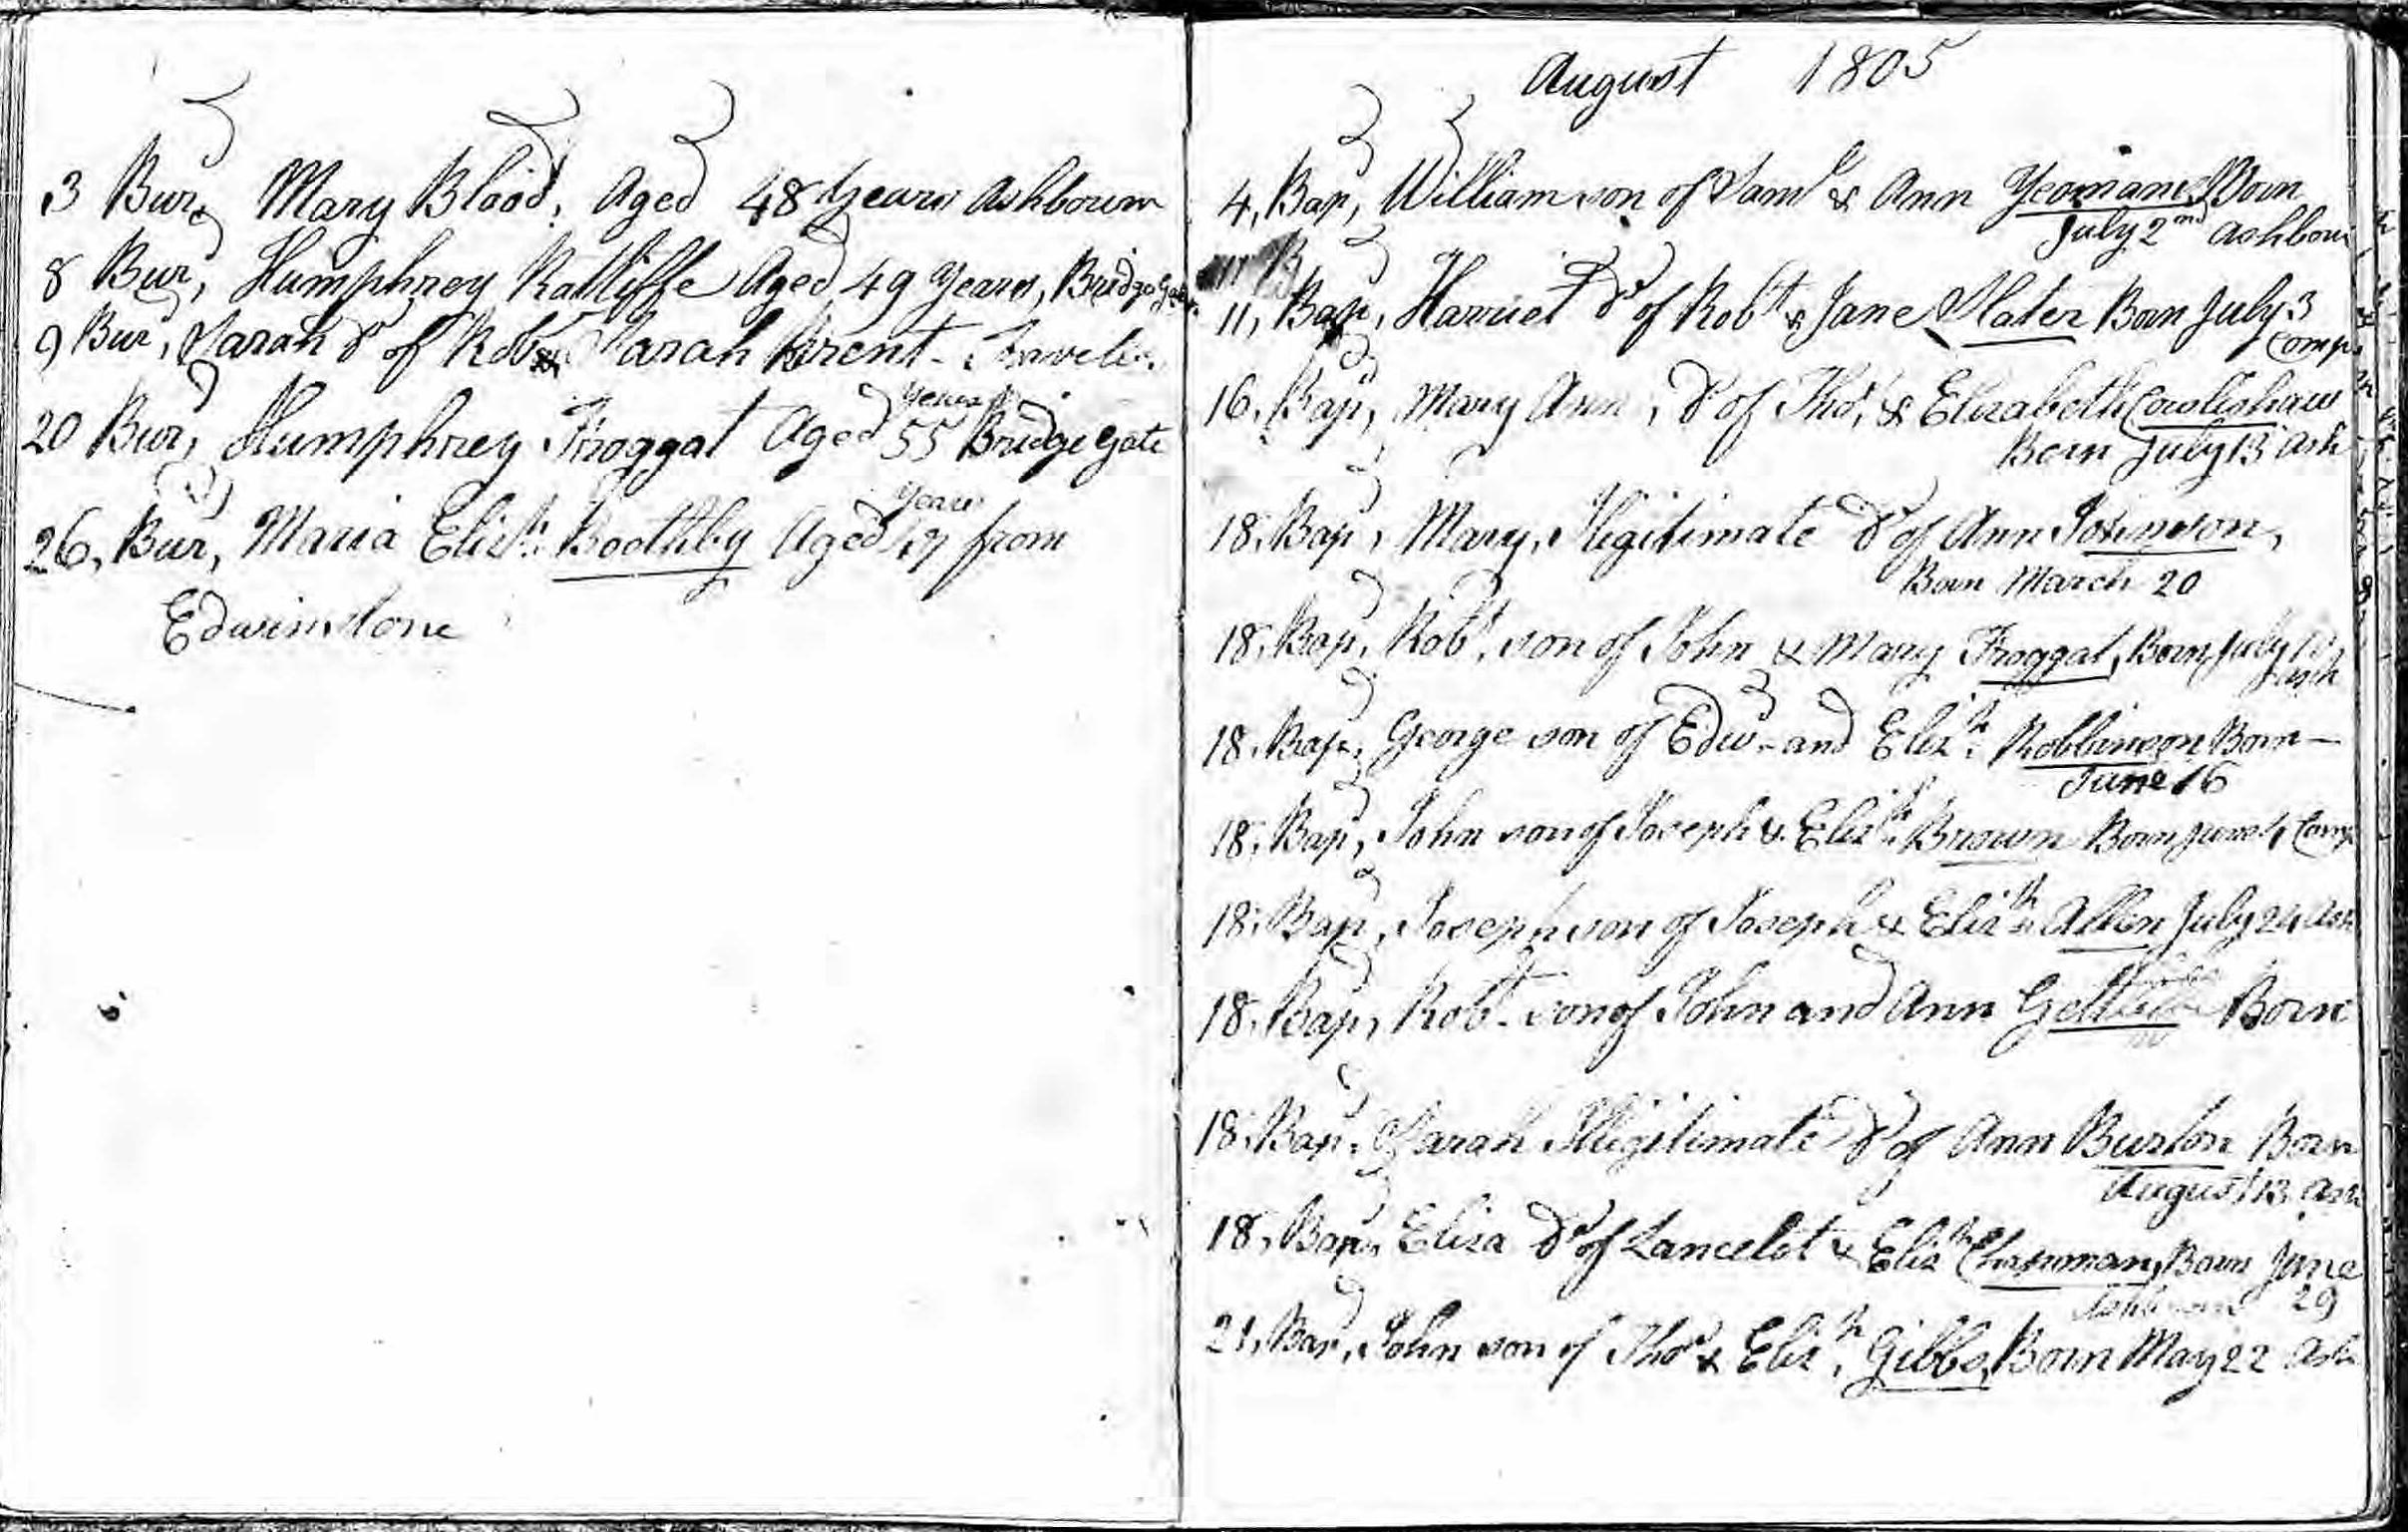 3 Bur, Mary Blood, Aged 48 Years Ashbourn
8 Bur, Humphrey Ratliffe Aged 49 Years, Bridge Gate
9 Bur, Sarah Dr of Robt & Sarah Brent - Traveler
Years
20 Bur, Humphrey Froggat Aged 55 Bridge Gate
Years
26, Bur, Maria Elizth Boothby Aged from
Edwinstone
August 1805
4, Bap, William son of Saml & Ann Yeomans Born
July 2nd Ashbour
11, Bap, Harriet Dr of Robt & Jane Slater Born July 3
Comp
16, Bap, Mary Ann, Dr of Thos, & Elizabeth Cowlishaw
Born July 13 Ash
18, Bap, Mary, Illigitimate Dr of Ann Johnson,
Born March 20
18, Bap, Robt, son of John & Mary Froggat, Born July
Ash
18, Bap, George son of Edw- and Elizth Robbinson Born -
June 16
18, Bap, John son of Joseph & Elizth Brown Born June Comp
18, Bap, Joseph son of Joseph & Elizth Allen July 24 Ash
18, Bap, Robt son of John and Ann Born
18, Bap, Sarah Illigitimate Dr of Ann Burton Born
August 13 Ash
18, Bap, Eliza Dr of Lancelot & Elizth Chapman, Born June
29
21, Bap, John son of Thos & Elizth, Gibbs, Born May 22 Ash